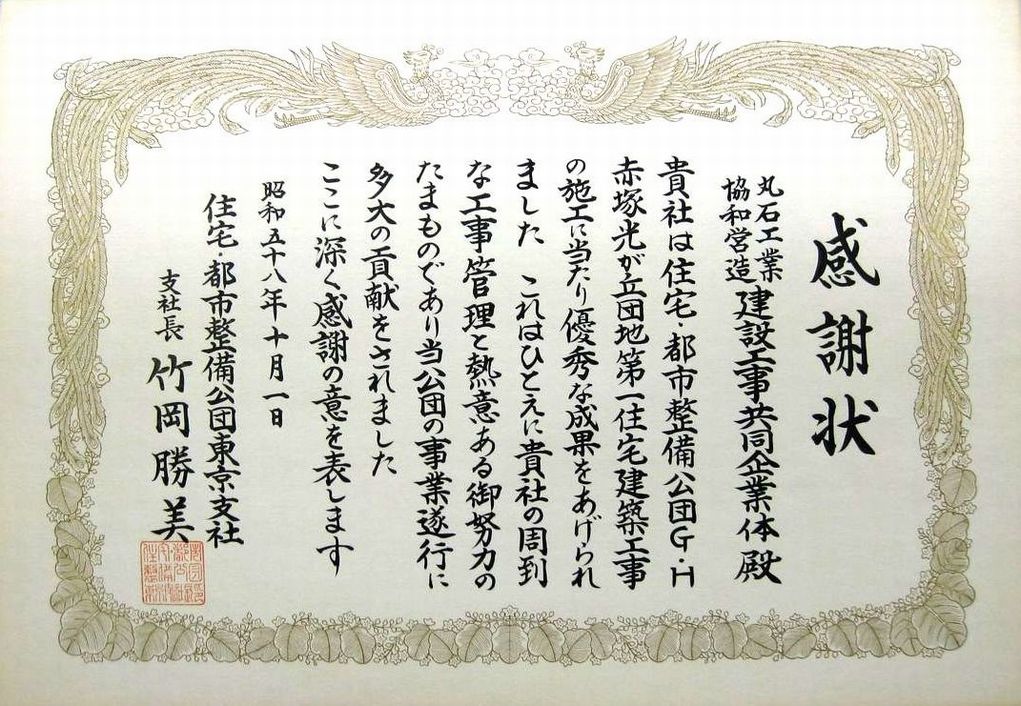 感謝状
丸石工業
協和営造
建設工事共同企業体 殿
貴社は住宅・都市整備公団G・H
赤塚光が丘団地第一住宅建築工事
の施工に当たり優秀な成果をあげられ
ました これはひとえに貴社の周到
な工事管理と熱意ある御努力の
たまものであり当公団の事業遂行に
多大の貢献をされました
ここに深く感謝の意を表します
昭和五十八年十月一日
住宅・都市整備公団東京支社
支社長 竹岡勝美